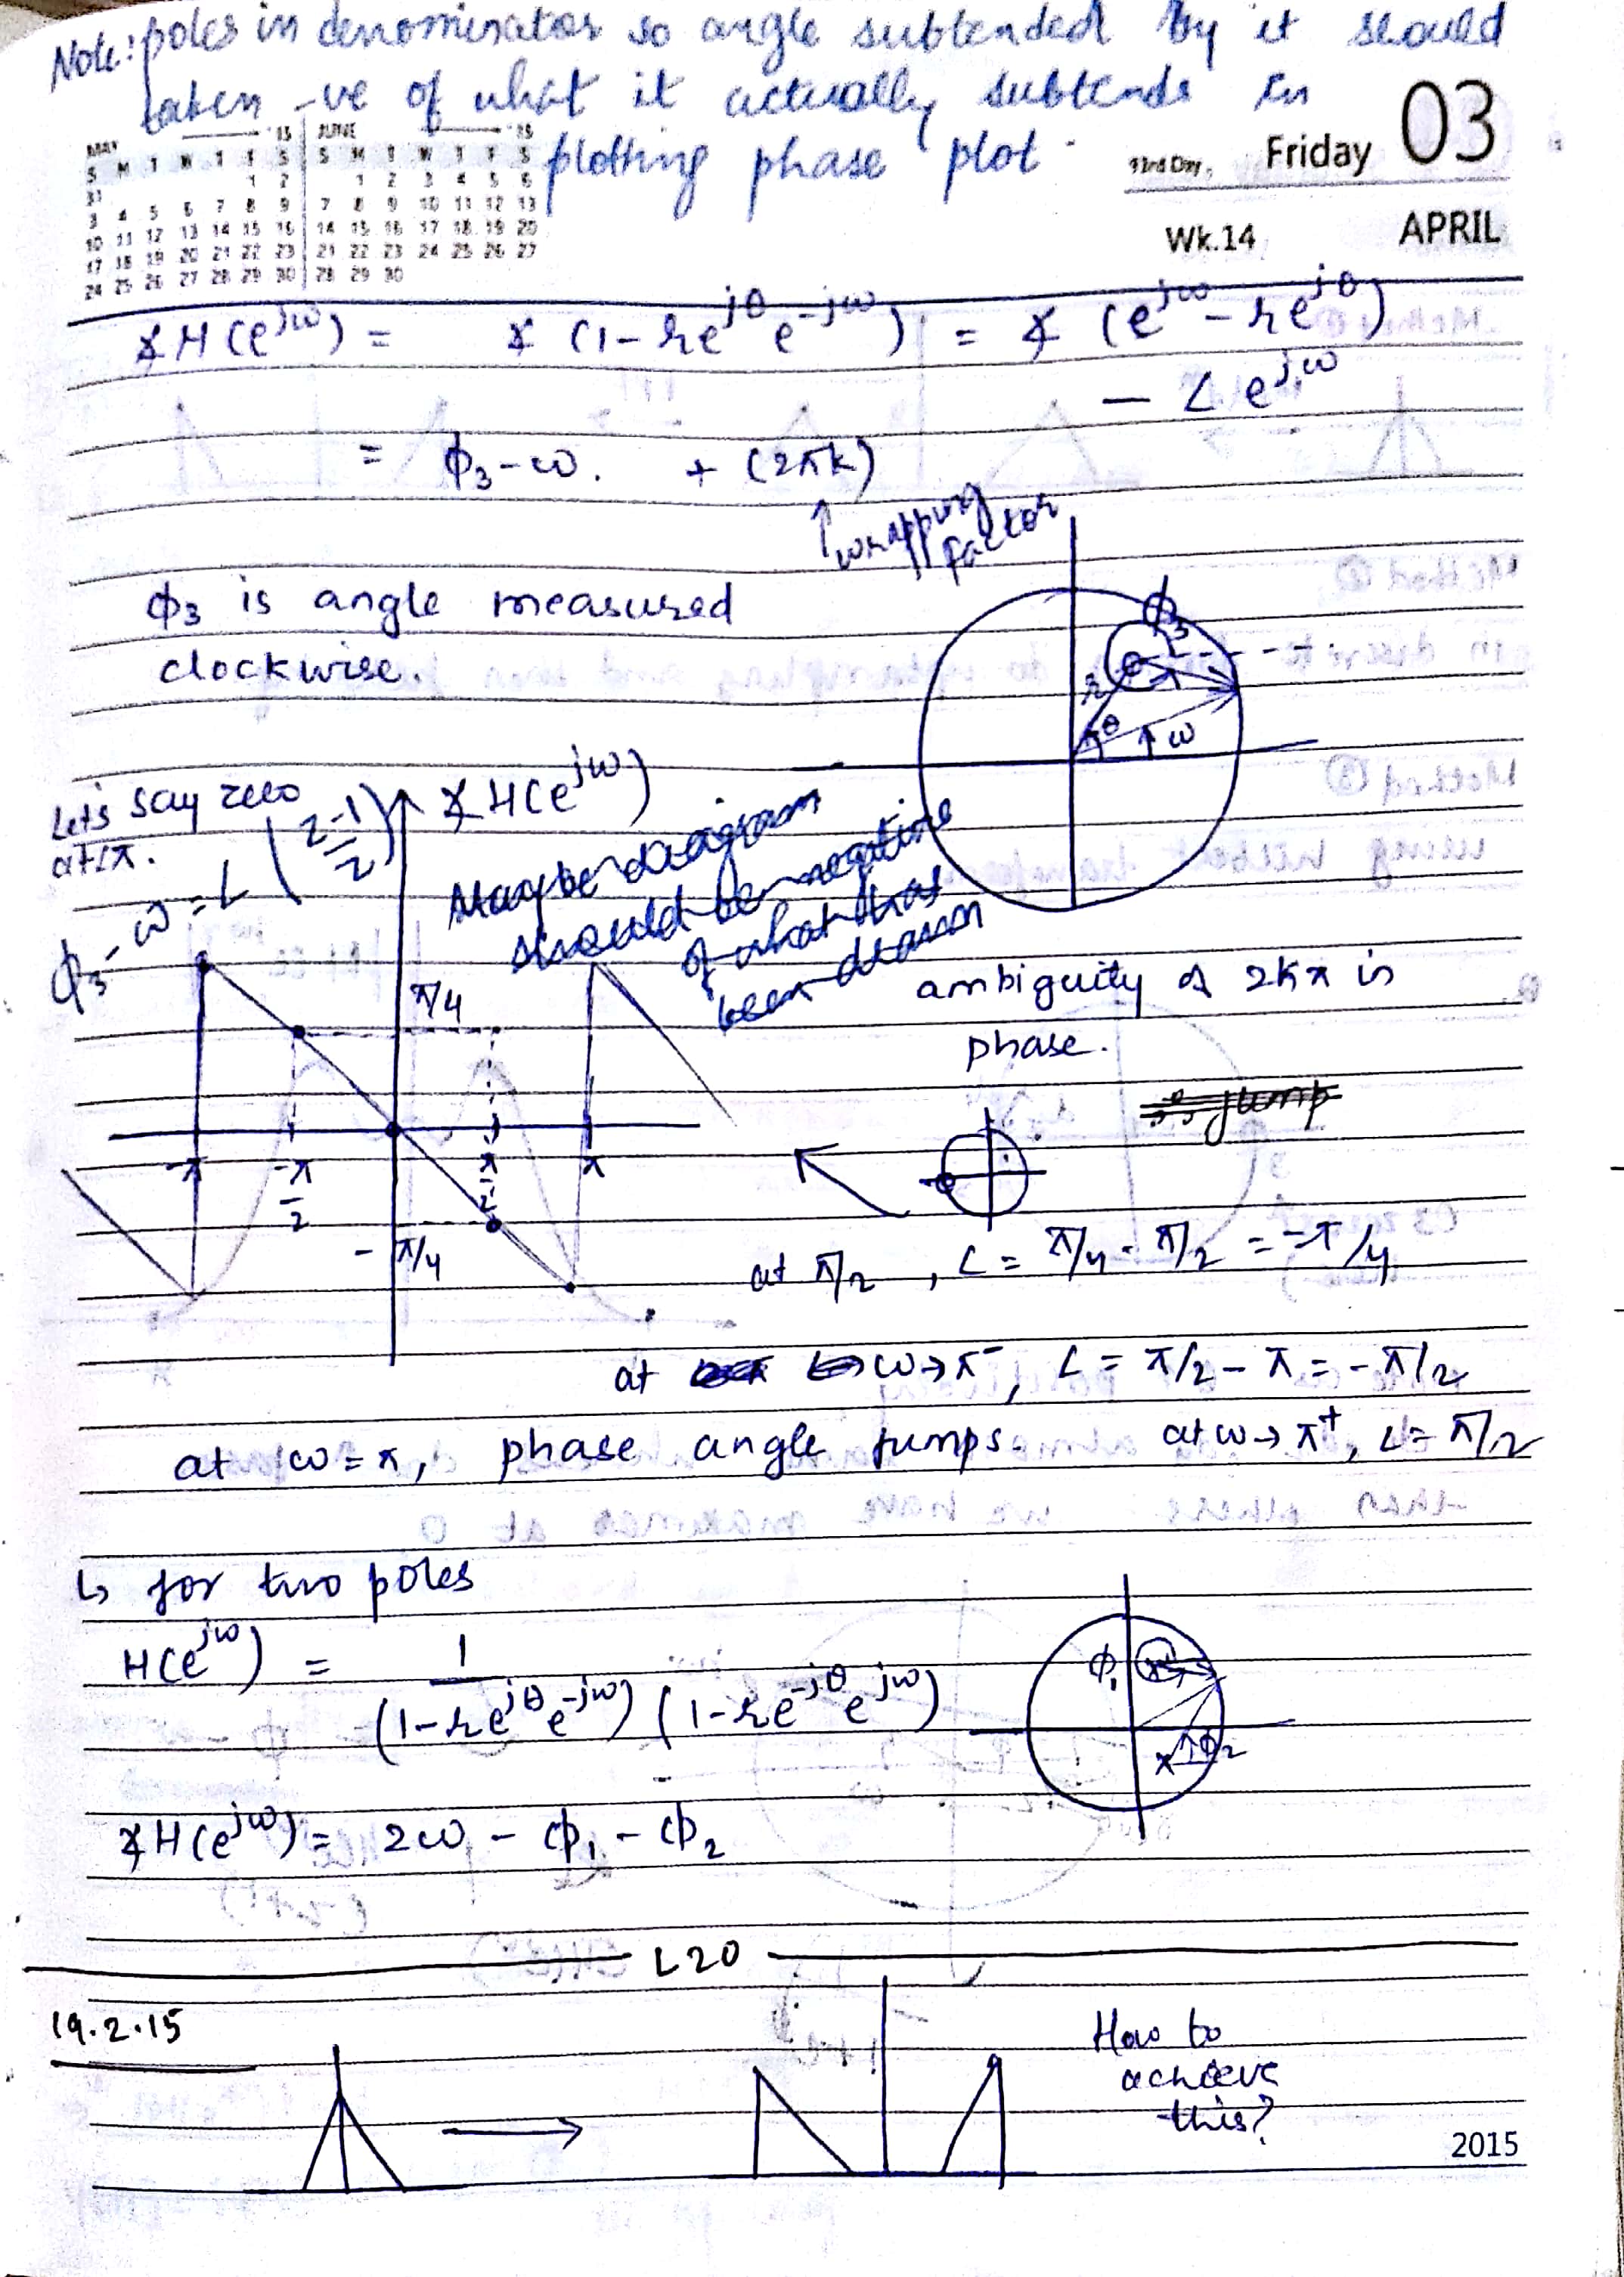 Note: poles in denominator so angle subtended by it should
taken -ve of what it actually subtends in
plotting phase plot.
MAY '15 JUNE '15
S M T W T F S S M T W T F S
31 1 2 1 2 3 4 5 6
3 4 5 6 7 8 9 7 8 9 10 11 12 13
10 11 12 13 14 15 16 14 15 16 17 18 19 20
17 18 19 20 21 22 23 21 22 23 24 25 26 27
24 25 26 27 28 29 30 28 29 30
93rd Day, Friday 03
Wk.14 APRIL
∡H(e^jω) = ∡(1-re^jθ e^-jω) = ∡(e^jω - re^jθ)
- ∠e^jω
= ϕ3-ω. + (2πk)
↑ wrapping
factor
ϕ3 is angle measured
clockwise.
ϕ3
r
θ
ω
Let's say zero
at ∠π.
ϕ3-ω = ∠((z-1)/z)
∡H(e^jω)
Maybe diagram
should be negative
of what has
been drawn
π/4
-π -π/2 π/2 π
-π/4
ambiguity of 2kπ in
phase.
at π/2, ∠ = π/4 - π/2 = -π/4
at ω→π⁻, ∠ = π/2 - π = -π/2
at ω=π, phase angle jumps. at ω→π⁺, ∠= π/2
↳ for two poles
H(e^jω) = 1/((1-re^jθ e^-jω)(1-re^-jθ e^jω))
ϕ1
ϕ2
∡H(e^jω) = 2ω - ϕ1 - ϕ2
L20
19.2.15
How to
achieve
this?
2015